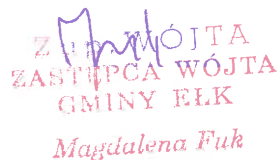 Z up. WÓJTA
ZASTĘPCA WÓJTA
GMINY EŁK
Magdalena Fuk